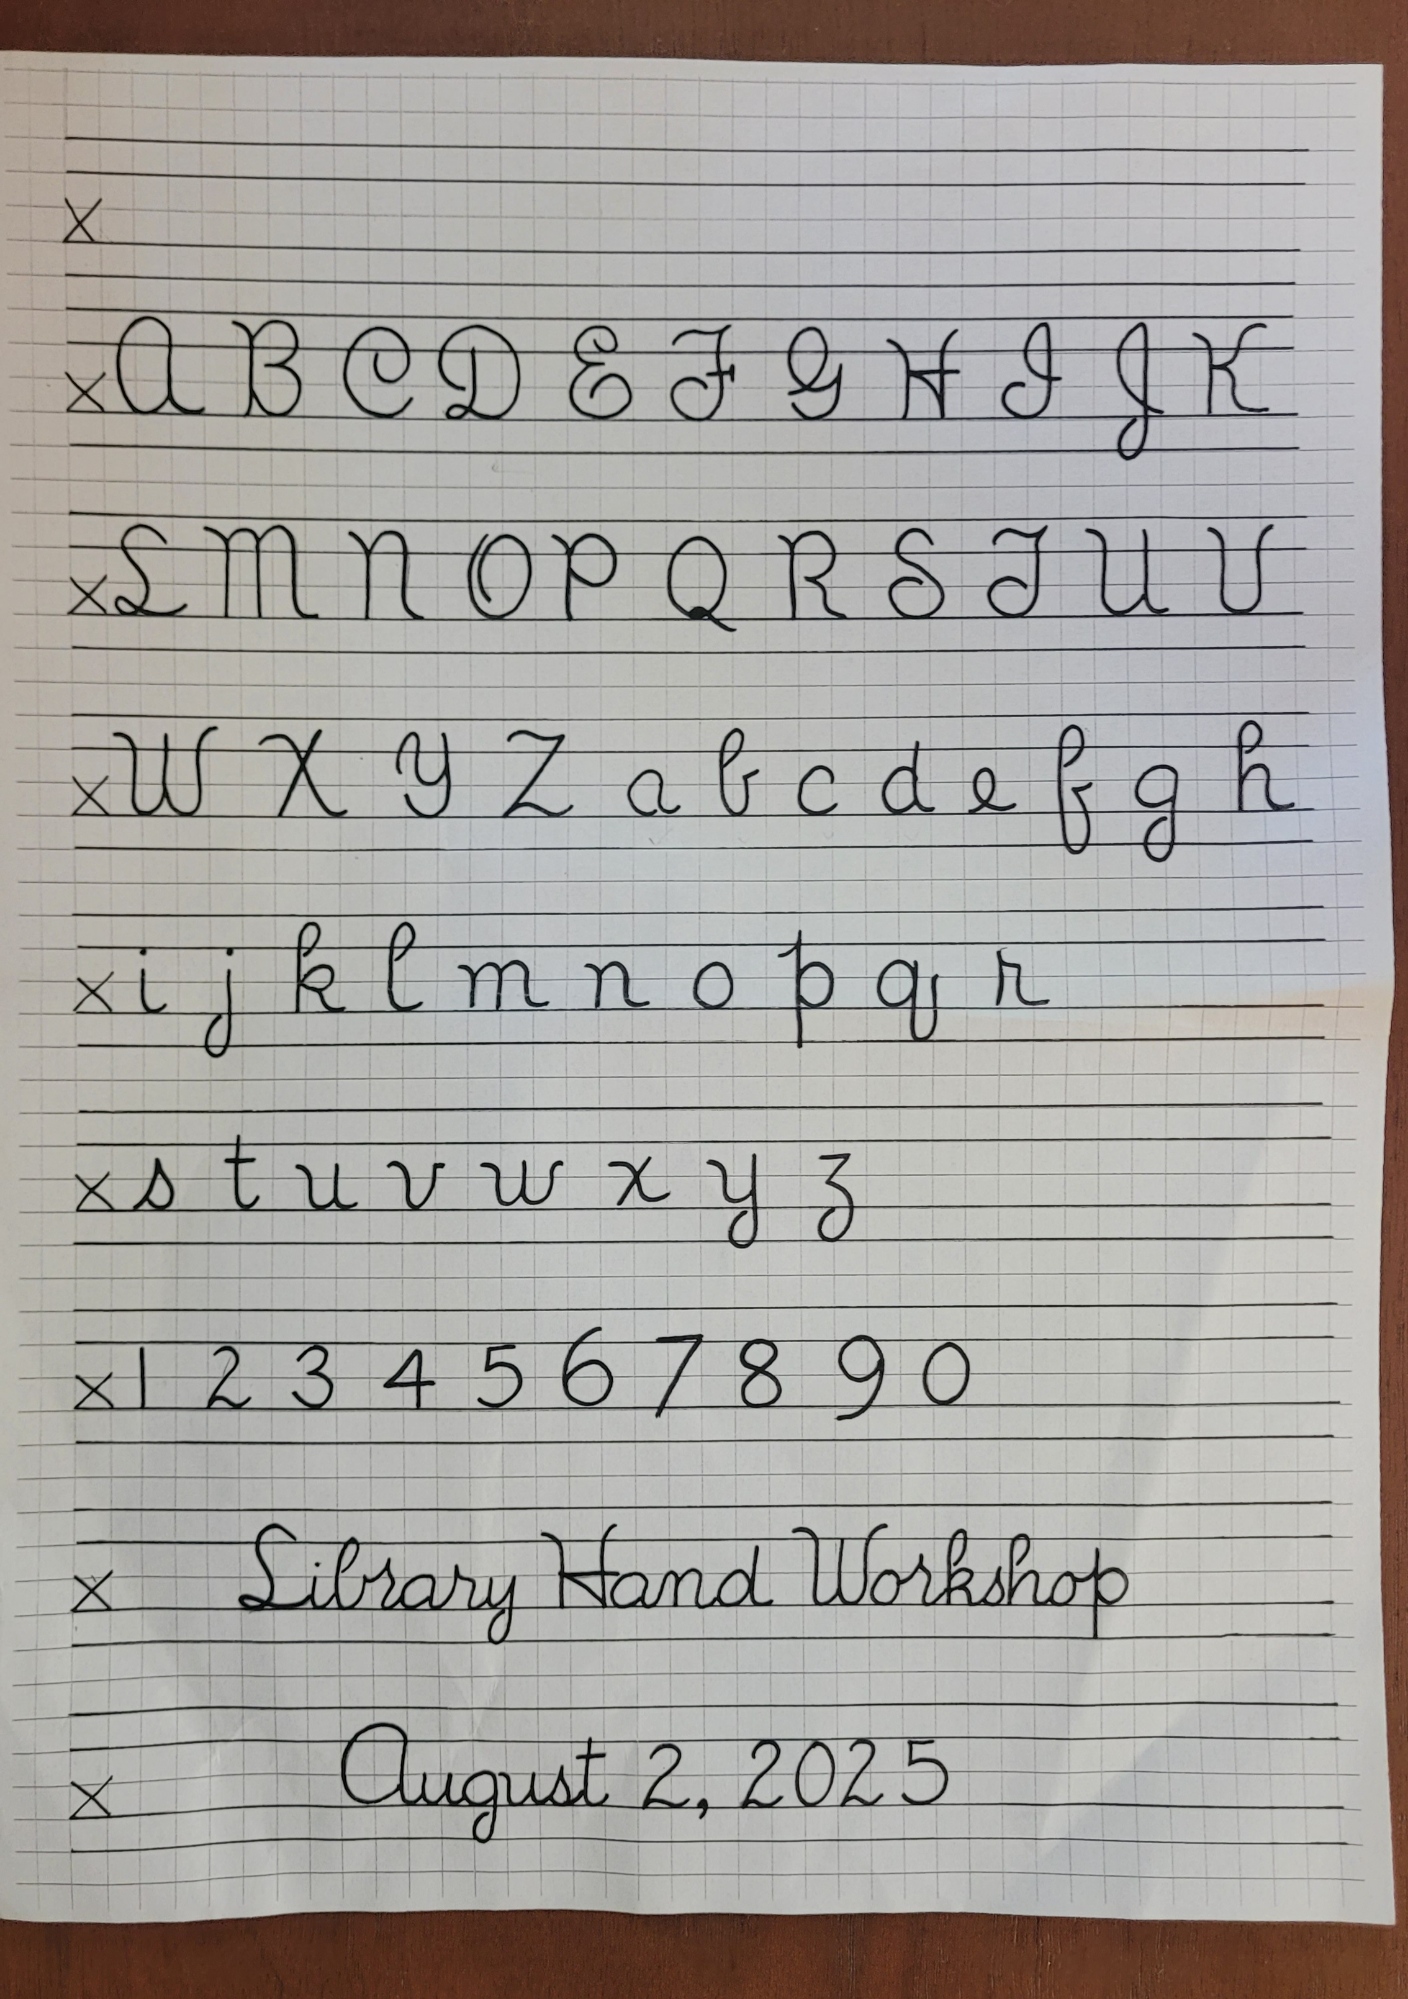 x
x A B C D E F G H I J K
x L M N O P Q R S T U V
x W X Y Z a b c d e f g h
x i j k l m n o p q r
x s t u v w x y z
x 1 2 3 4 5 6 7 8 9 0
x Library Hand Workshop
x August 2, 2025